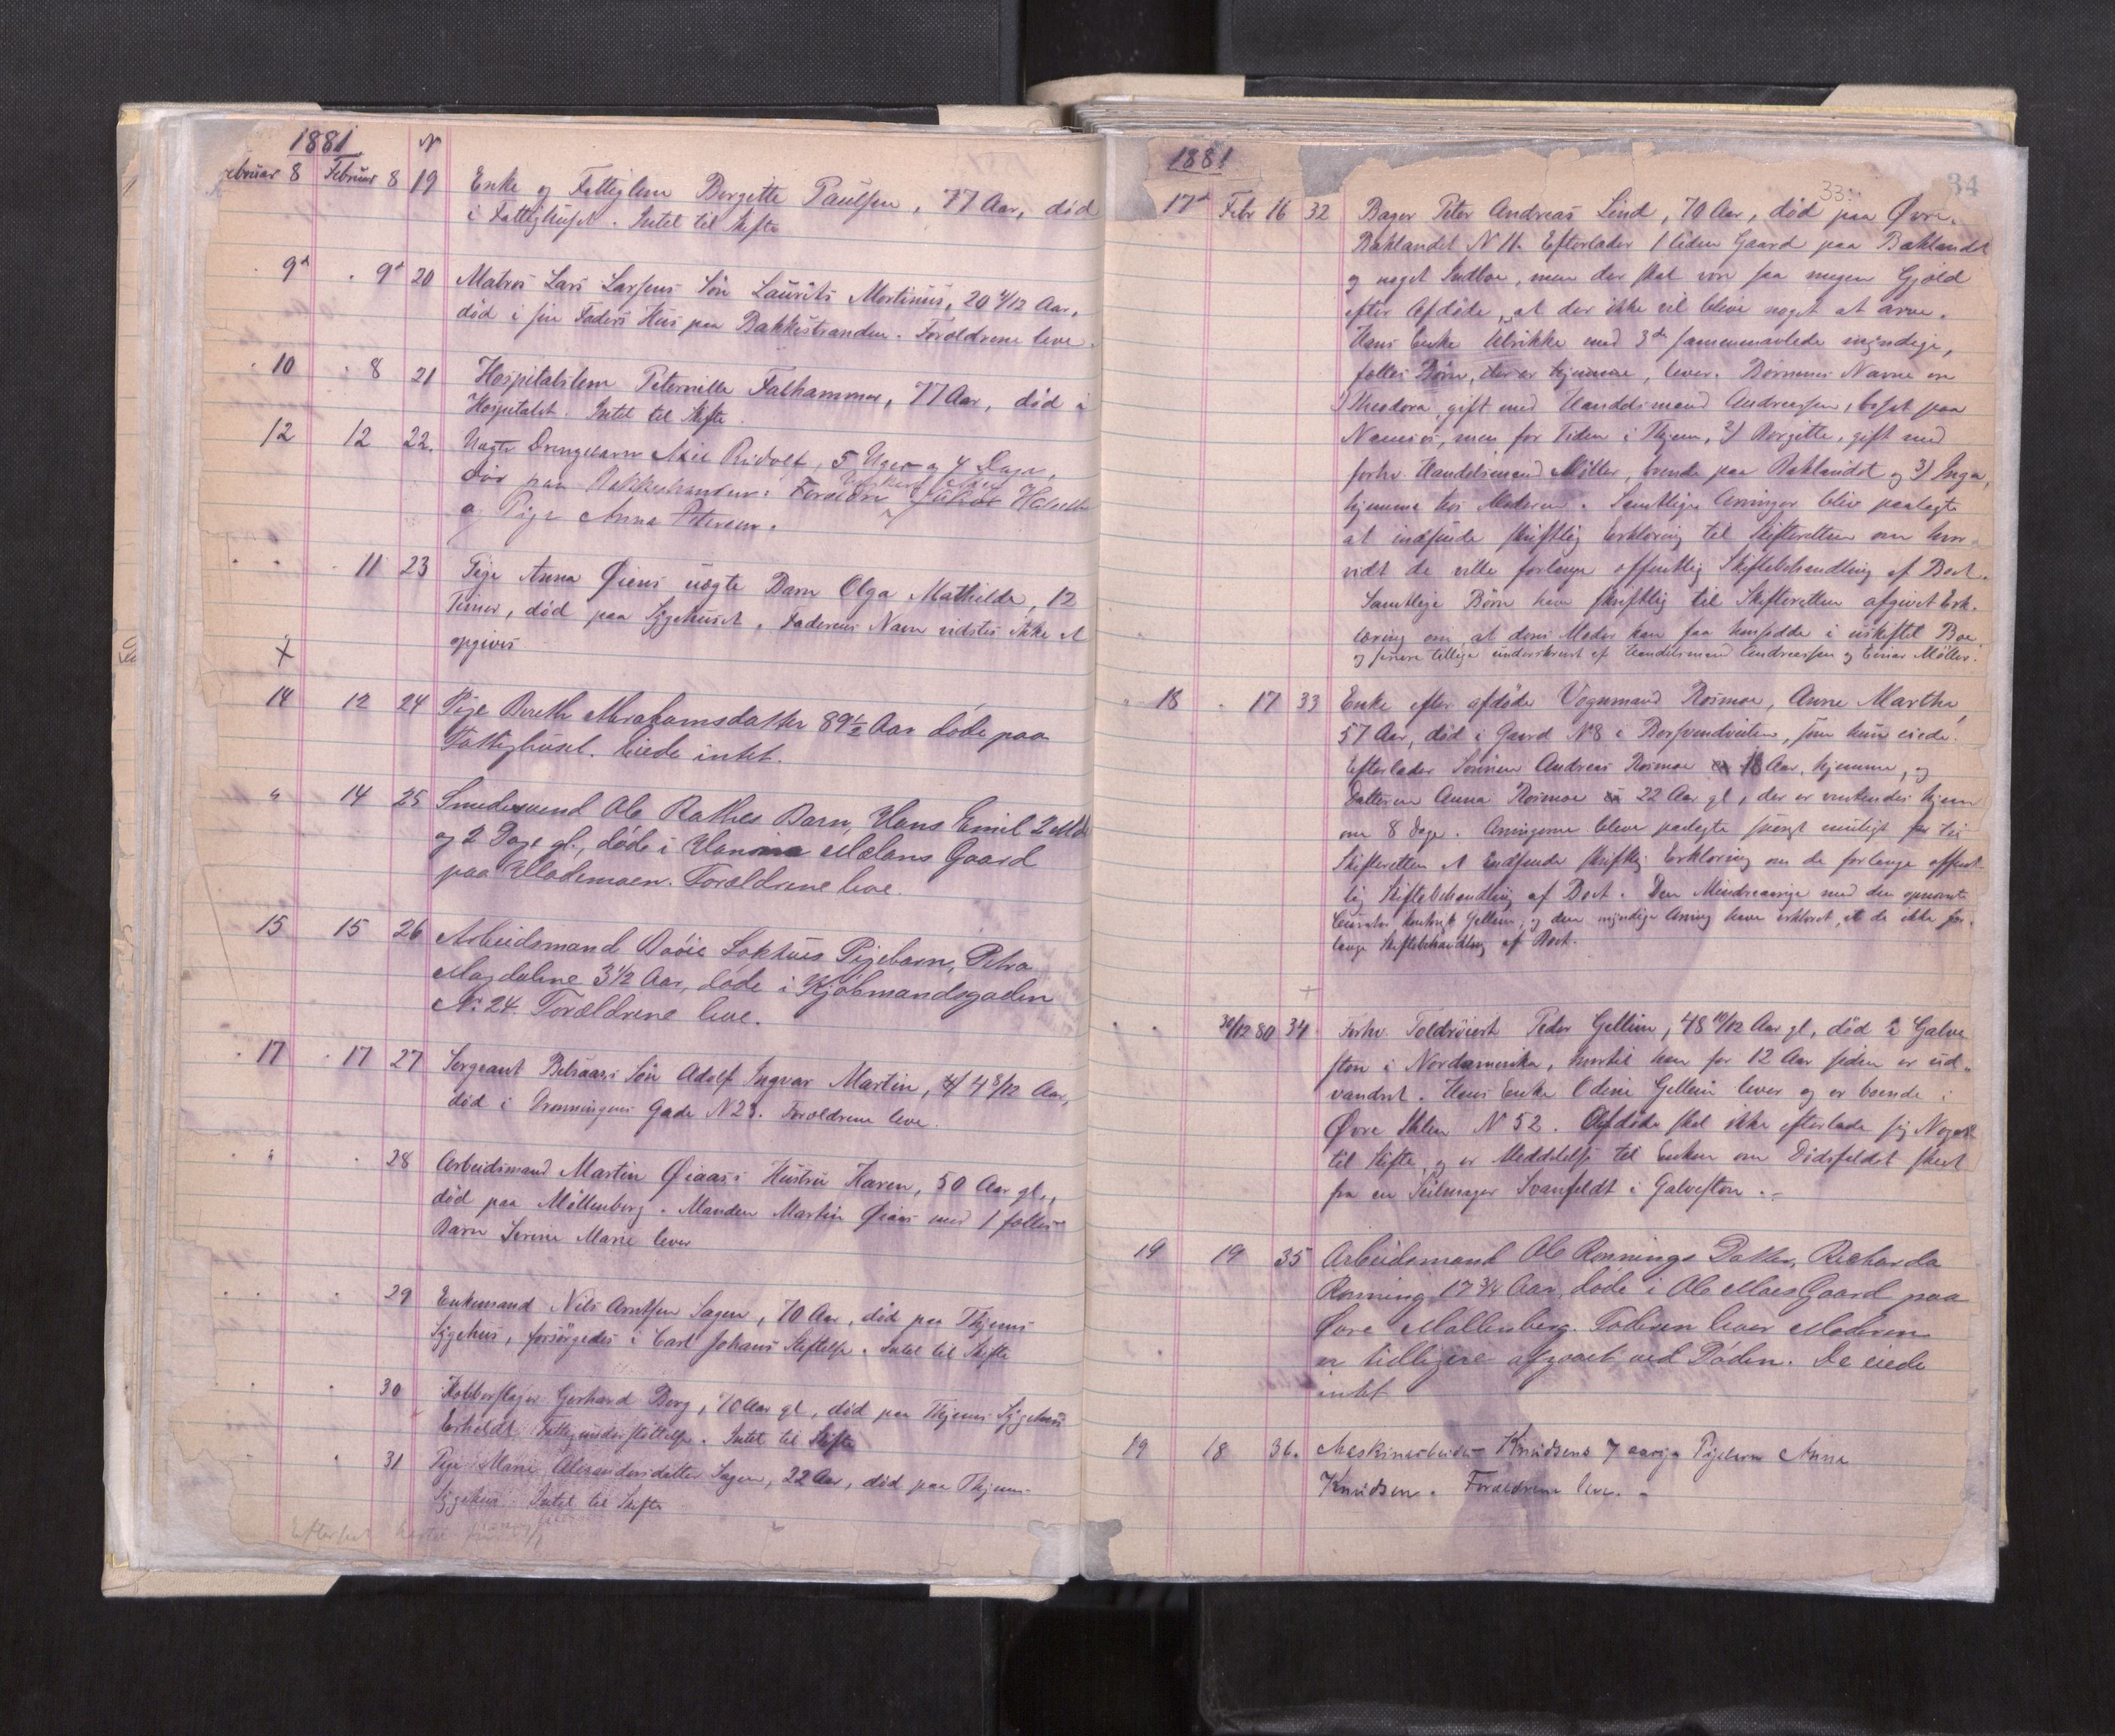 1881
N
ebruar 8 Februar 8 19 Enke og Fattiglem Bergitte Paulsen, 77 Aar, död
i Fattighuset. Intet til Skifte
9d 9d 20 Matros Lars Larsens Sön Laurits Martinus, 20 4/12 Aar,
död i sin Faders Hus paa Bakkestranden. Forældrene leve.
10 8 21 Hospitalslem Peternille Falhammer, 77 Aar, död i
Hospitalet. Intet til Skifte.
12 12 22. Uægte Drengebarn Axel Rudolf, 5 Uger og 4 Dage,
död paa Bakkestranden. Forældre
og Pige Anna Petersen.
11 23 Pige Anna Öiens uægte Barn Olga Mathilde, 12
Timer, död paa Sygehuset. Faderens Navn vidstes ikke at
opgives
14 12 24 Pige Bereth Abrahamsdatter 89 1/2 Aar døde paa
Fattighuset. Eiede intet.
" 14 25 Smedesvend Ole Rathes Barn, Hans Emil 2 Mdr
og 2 Dage gl., døde i Gaard
paa Ilademoen. Forældrene leve.
15 15 26 Arbeidsmand Pigebarn, Petra
Magdaline 3 1/2 Aar, døde i Kjøbmandsgaden
No. 24. Forældrene leve.
17 17 27 Sergeant Sön Adolf Ingvar Martin, 4 8/12 Aar,
död i Dronningens Gade N 23. Forældrene leve.
" 28 Arbeidsmand Martin Öiaas's Hustru Karen, 50 Aar gl.,
död paa Möllenberg. Manden Martin Öiaas med 1 fælles
Barn Serine Marie lever
29 Enkemand Nils Arntsen Sagen, 70 Aar, död paa Thjems
Sygehus, forsörgedes i Carl Johans Stiftelse. Intet til Skifte
30 Kobberslager Gerhard Berg, 70 Aar gl, död paa Thjems Sygehus
Erholdt Fattigunderstöttelse. Intet til Skifte
31 Pige Marie Alexandersdatter Sagen, 22 Aar, död paa Thjems
Sygehus. Intet til Skifte
1881
33
34
17d Febr 16 32 Bager Peter Andreas Lind, 70 Aar, död paa Övre
Baklandet N 11. Efterlader 1 liden Gaard paa Baklandet
og noget Indboe, men der skal være saa megen Gjæld
efter Afdöde, at der ikke vil blive noget at arve.
Hans Enke Ulrikke med 3de sammenavlede myndige,
fælles Börn, der er hjemme, lever. Börnenes Navne er
1) Theodora, gift med Handelsmand Andreassen, bosat paa
Namsos, men for Tiden i Thjem, 2) Bergitte, gift med
forhv. Handelsmand Möller, boende paa Baklandet og 3) Inga,
hjemme hos Moderen. Samtlige Arvinger blev paalagte
at indsende skriftlig Erklæring til Skifteretten om hvor-
vidt de ville forlange offentlig Skiftebehandling af Boet.
Samtlige Börn have skriftlig til Skifteretten afgivet Erk-
læring om, at deres Moder kan faa hensidde i uskiftet Boe
og tillige underskrevet af Handelsmand Andreassen og Einar Möller.
18 17 33 Enke efter afdöde Vognmand Rosmoe, Anne Martha,
57 Aar, död i Gaard No 8 i, som hun eiede.
Efterlader Sönnen Andreas Rosmoe 18 Aar, hjemme, og
Datteren Anna Rosmoe 22 Aar gl, der er ventendes hjem
om 8 Dage. Arvingerne bleve paalagte
Skifteretten at indsende skriftlig Erklæring om de forlange offent-
lig Skiftebehandling af Boet. Den Mindreaarige med den opnævnte
Curator Gellein, og den myndige Arving have erklæret, at de ikke for-
lange Skiftebehandling af Boet.
+
/12 80 34 Forhv. Toldröiert Peder Gellein, 48 10/12 Aar gl, död i Galve-
ston i Nordamerika, hvortil han for 12 Aar siden er ud-
vandret. Hans Enke Odine Gellein lever og er boende i
Övre Ihlen N 52. Afdöde skal ikke efterlade sig Noget
til Skifte, og er Meddelelse til Enken om Dödsfaldet skeet
fra en Seilmager Svanfeldt i Galveston.
19 19 35 Arbeidsmand Ole Rønnings Datter, Richarda
Rønning 17 3/4 Aar, døde i Ole Moes Gaard paa
Øvre Møllenberg. Faderen lever Moderen
er tidligere afgaaet ved Døden. De eiede
intet
19 18 36. Maskinarbeider Knudsens 7 aarige Pigebarn Anna
Knudsen. Forældrene leve.